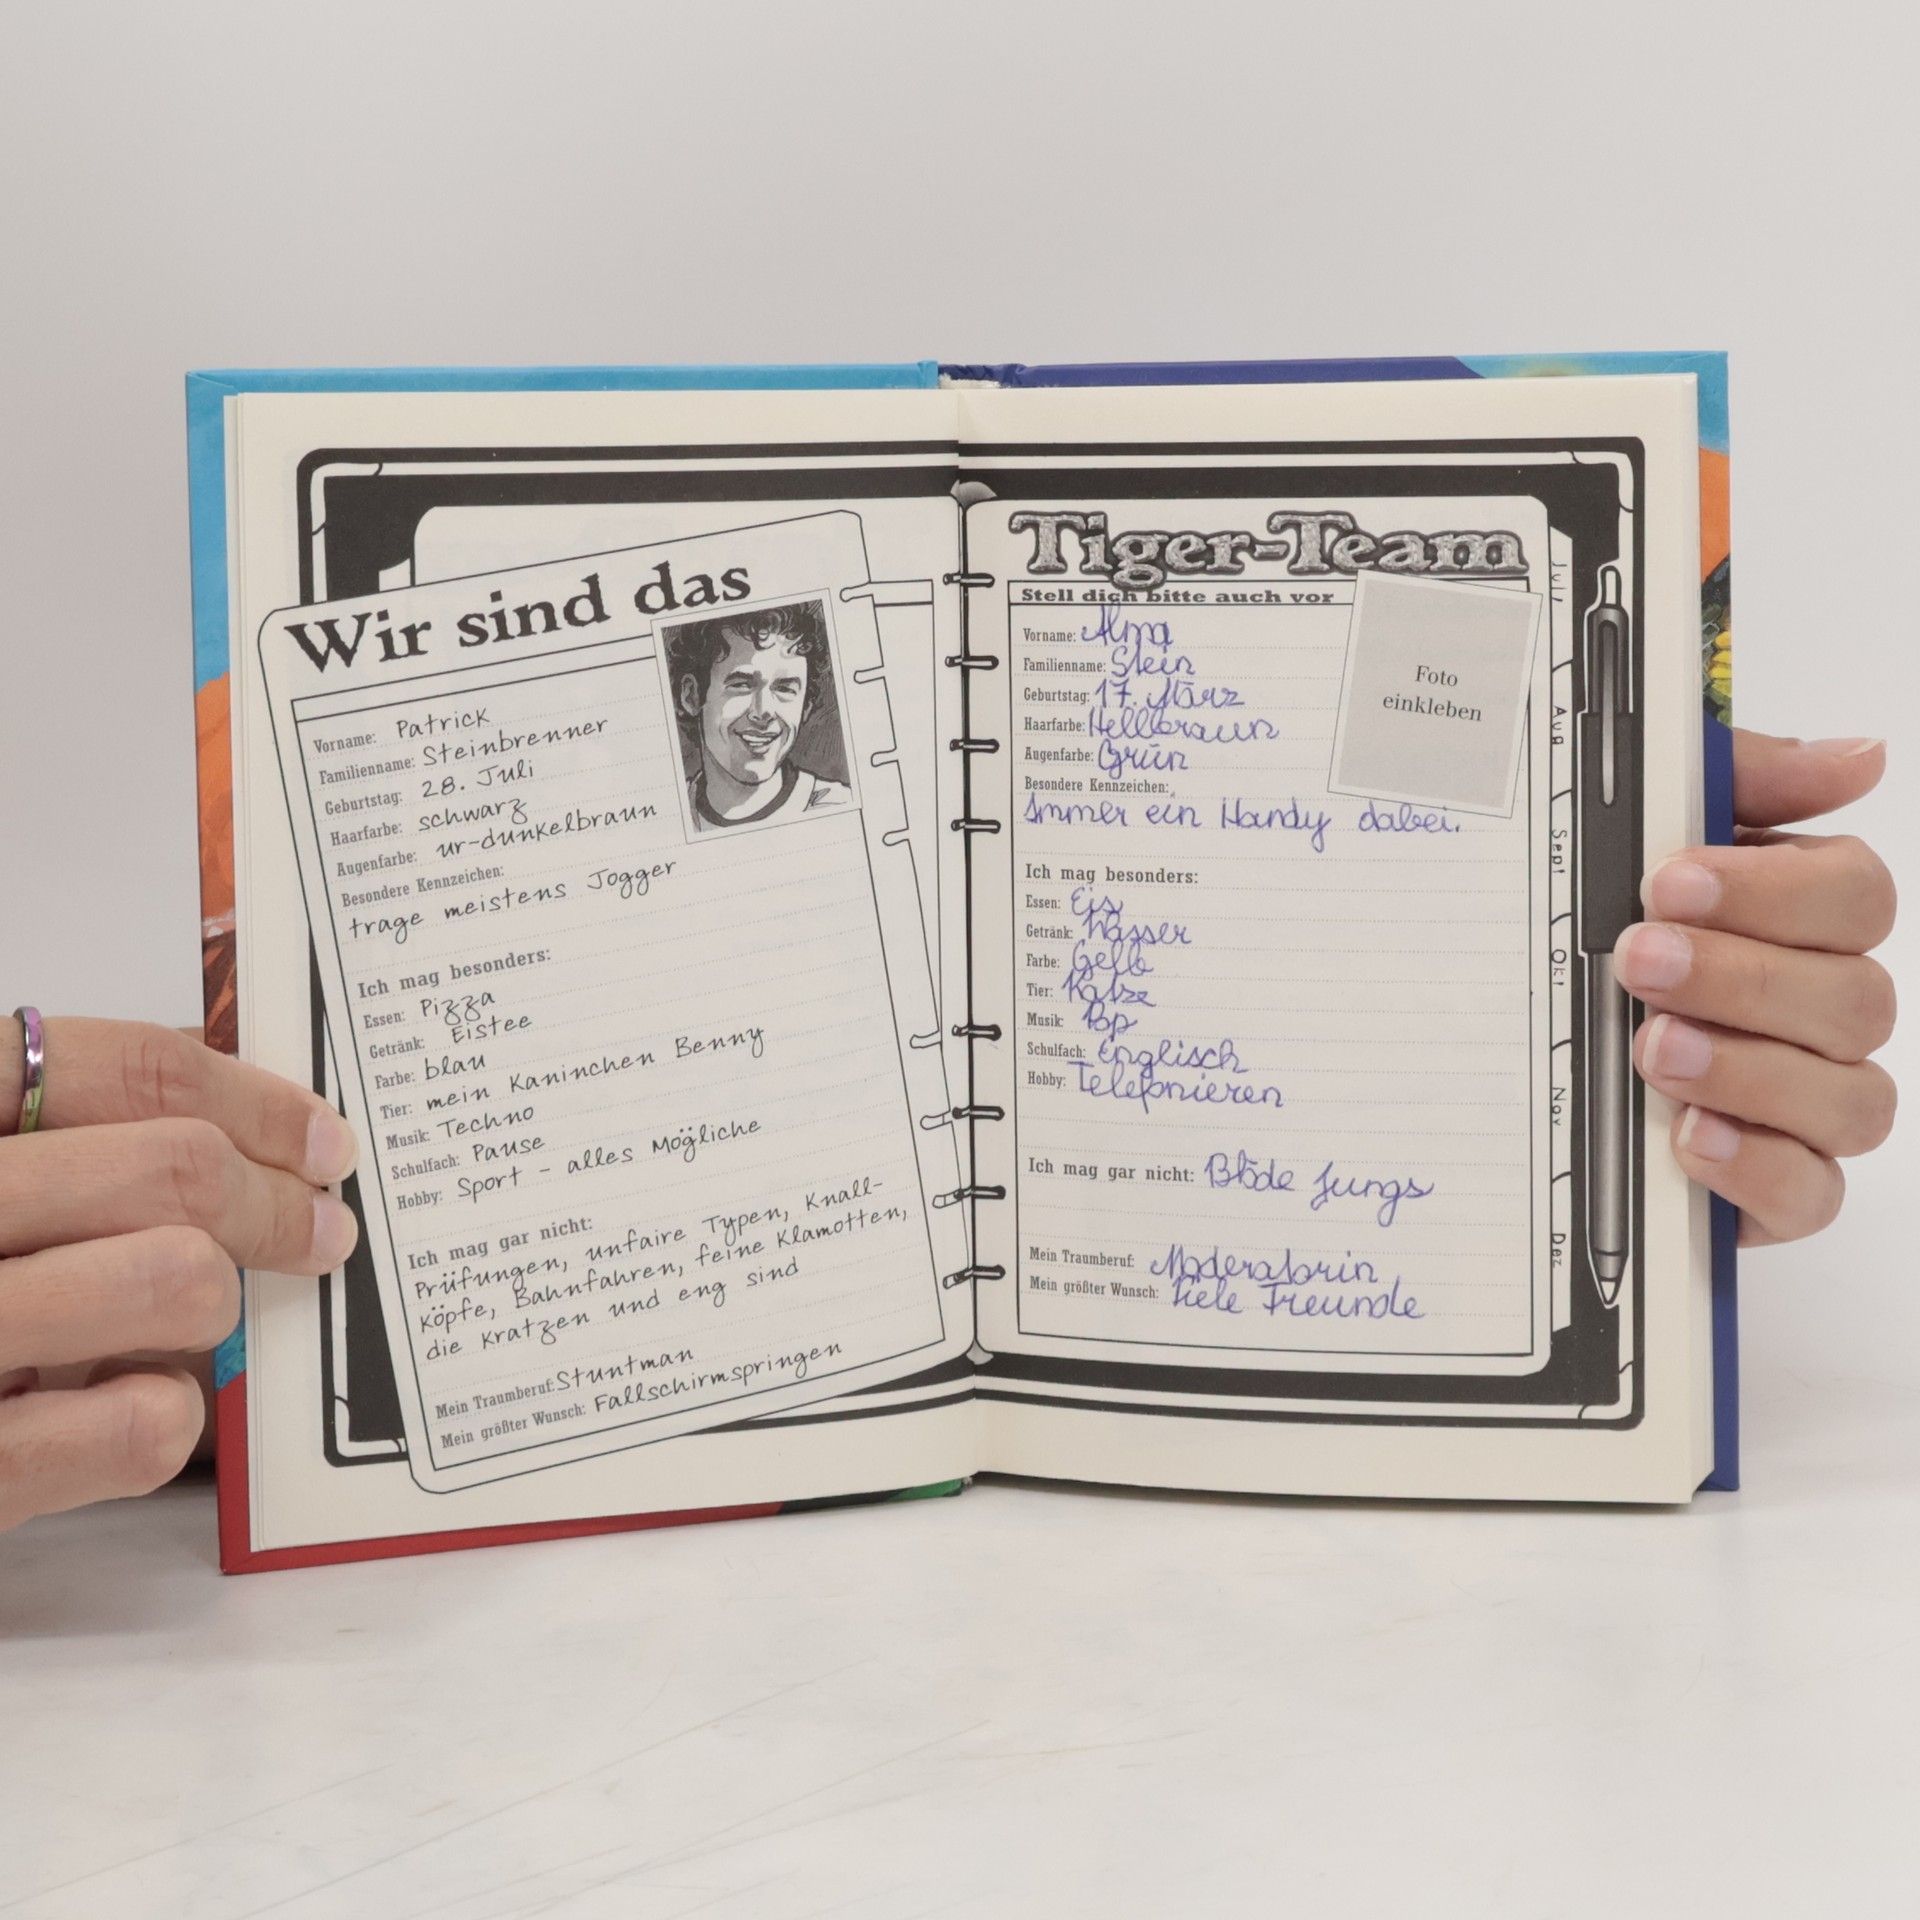 Wir sind das
Vorname: Patrick
Familienname: Steinbrenner
Geburtstag: 28. Juli
Haarfarbe: schwarz
Augenfarbe: ur-dunkelbraun
Besondere Kennzeichen:
trage meistens Jogger
Ich mag besonders:
Essen: Pizza
Getränk: Eistee
Farbe: blau
Tier: mein Kaninchen Benny
Musik: Techno
Schulfach: Pause
Hobby: Sport - alles Mögliche
Ich mag gar nicht:
Prüfungen, unfaire Typen, Knall-
köpfe, Bahnfahren, feine Klamotten,
die kratzen und eng sind
Mein Traumberuf: Stuntman
Mein größter Wunsch: Fallschirmspringen
Tiger-Team
Stell dich bitte auch vor
Vorname: Alma
Familienname: Stein
Geburtstag: 17. März
Haarfarbe: Hellbraun
Augenfarbe: Grün
Besondere Kennzeichen:
Immer ein Handy dabei.
Ich mag besonders:
Essen: Eis
Getränk: Wasser
Farbe: Gelb
Tier: Katze
Musik: Pop
Schulfach: Englisch
Hobby: Telefonieren
Ich mag gar nicht: Blöde Jungs
Mein Traumberuf: Moderatorin
Mein größter Wunsch: Viele Freunde
Foto
einkleben
Juli
Aug
Sept
Okt
Nov
Dez